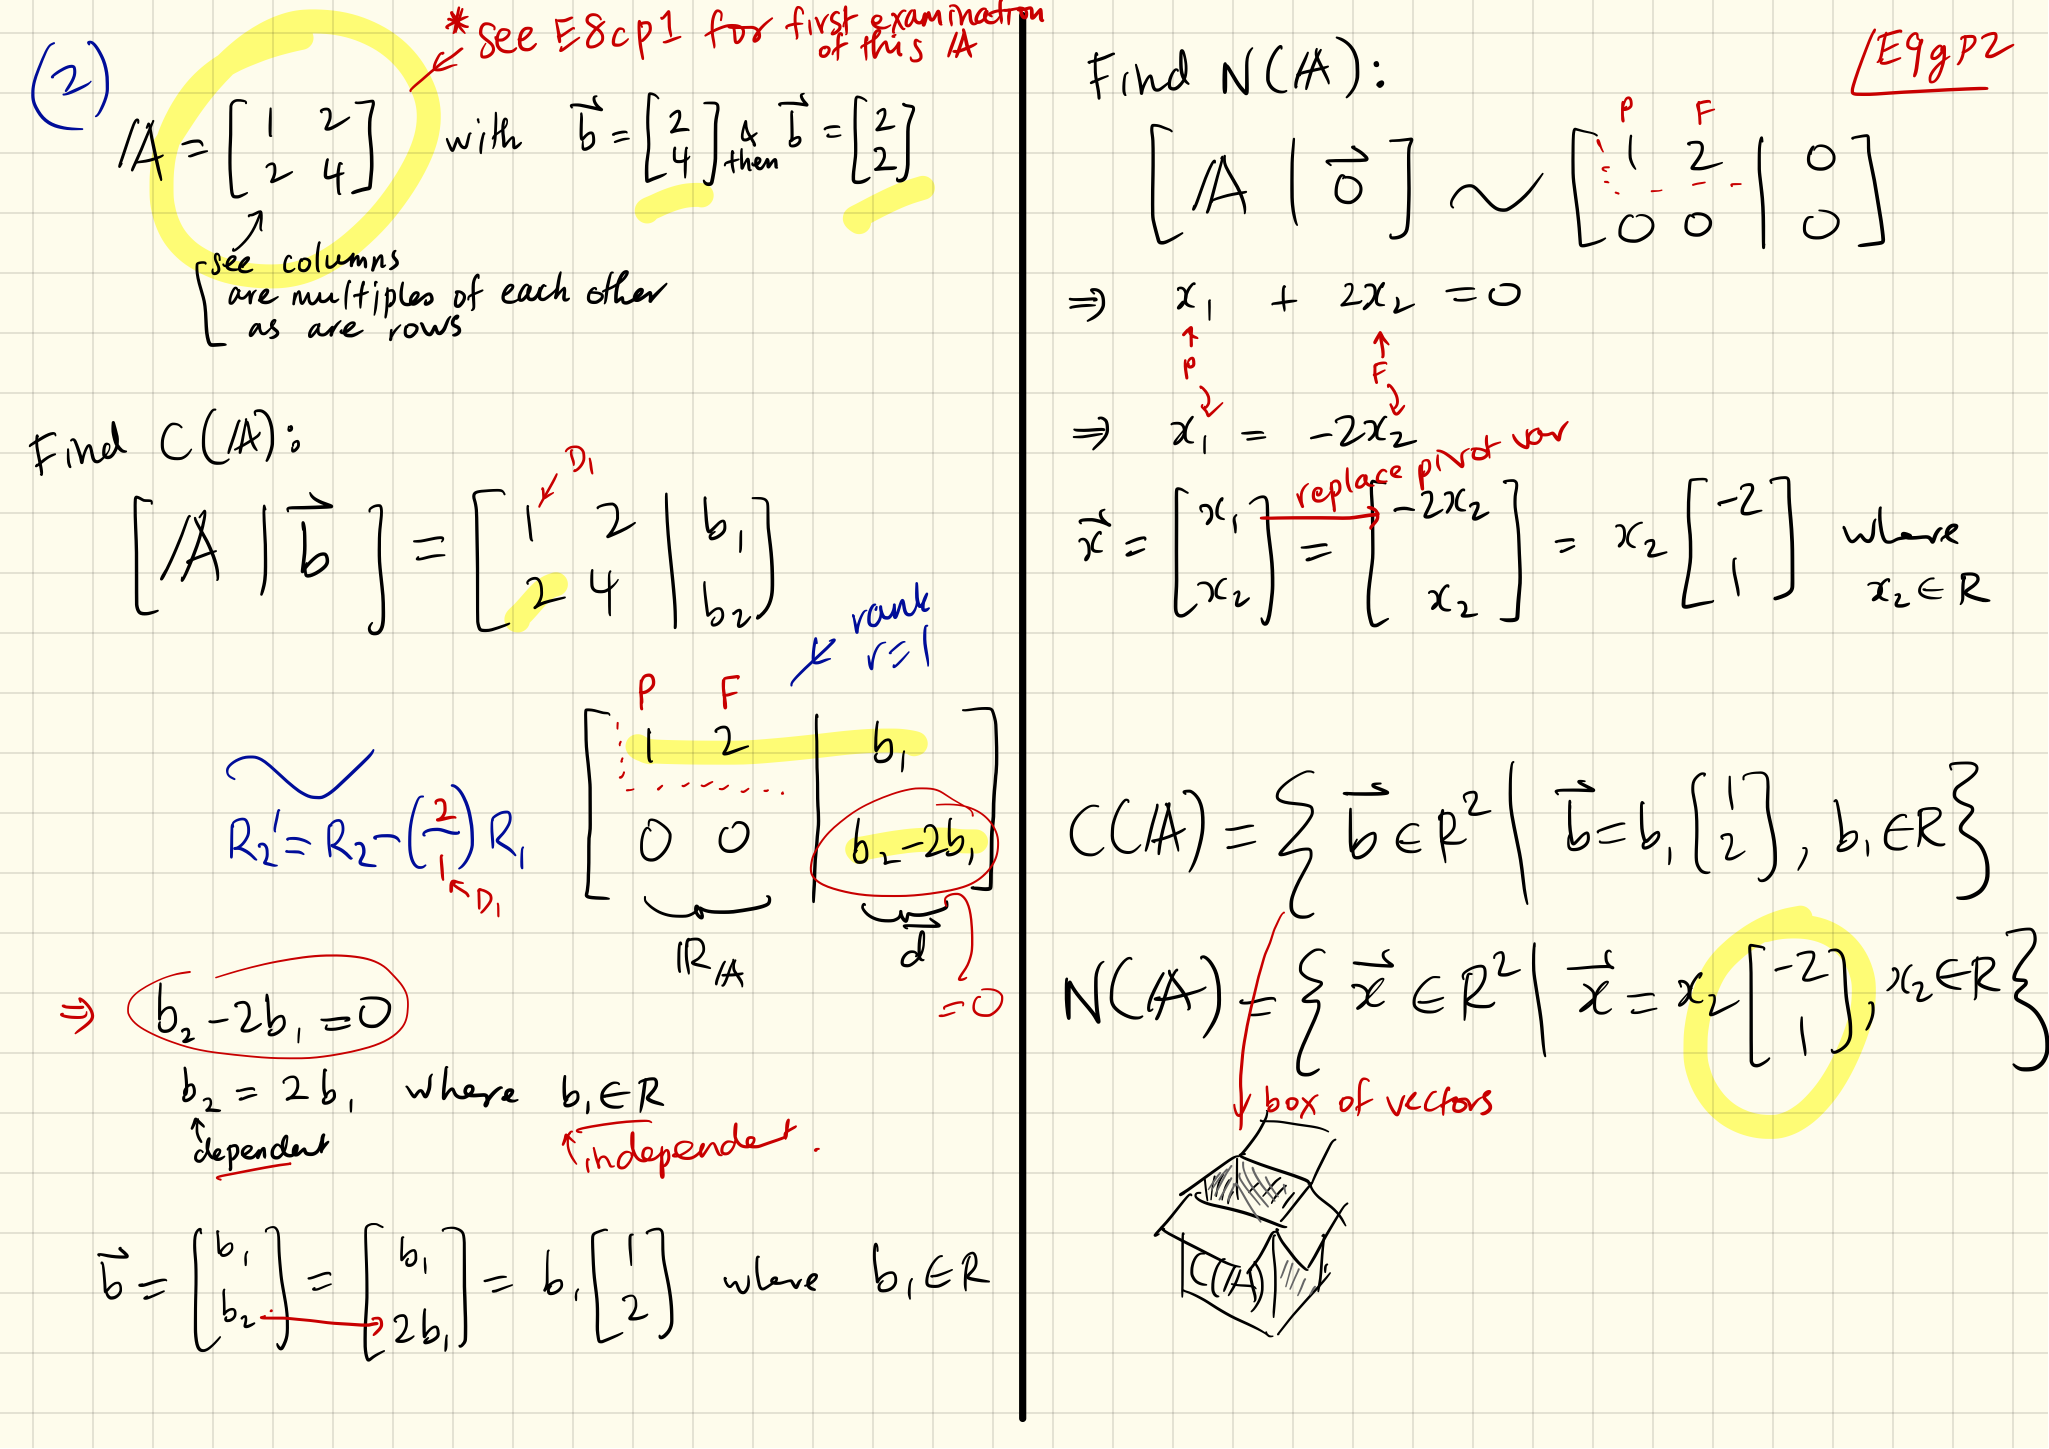 (2)
* see E8cp1 for first examination of this A
A = [1 2; 2 4] with b⃗ = [2; 4] & then b⃗ = [2; 2]
see columns
are multiples of each other
as are rows
Find C(A):
[A | b⃗] = [1 2 | b₁; 2 4 | b₂]
D₁
rank
r = 1
P F
~ [1 2 | b₁; 0 0 | b₂ - 2b₁]
R₂' = R₂ - (2/1) R₁
D₁
R_A
d⃗
= 0
⇒ b₂ - 2b₁ = 0
b₂ = 2b₁ where b₁ ∈ R
dependent
independent.
b⃗ = [b₁; b₂] = [b₁; 2b₁] = b₁ [1; 2] where b₁ ∈ R
E9gP2
Find N(A):
P F
[A | 0⃗] ~ [1 2 | 0; 0 0 | 0]
⇒ x₁ + 2x₂ = 0
P F
⇒ x₁ = -2x₂
replace pivot var
x⃗ = [x₁; x₂] = [-2x₂; x₂] = x₂ [-2; 1] where x₂ ∈ R
C(A) = { b⃗ ∈ R² | b⃗ = b₁ [1; 2], b₁ ∈ R }
N(A) = { x⃗ ∈ R² | x⃗ = x₂ [-2; 1], x₂ ∈ R }
box of vectors
C(A)